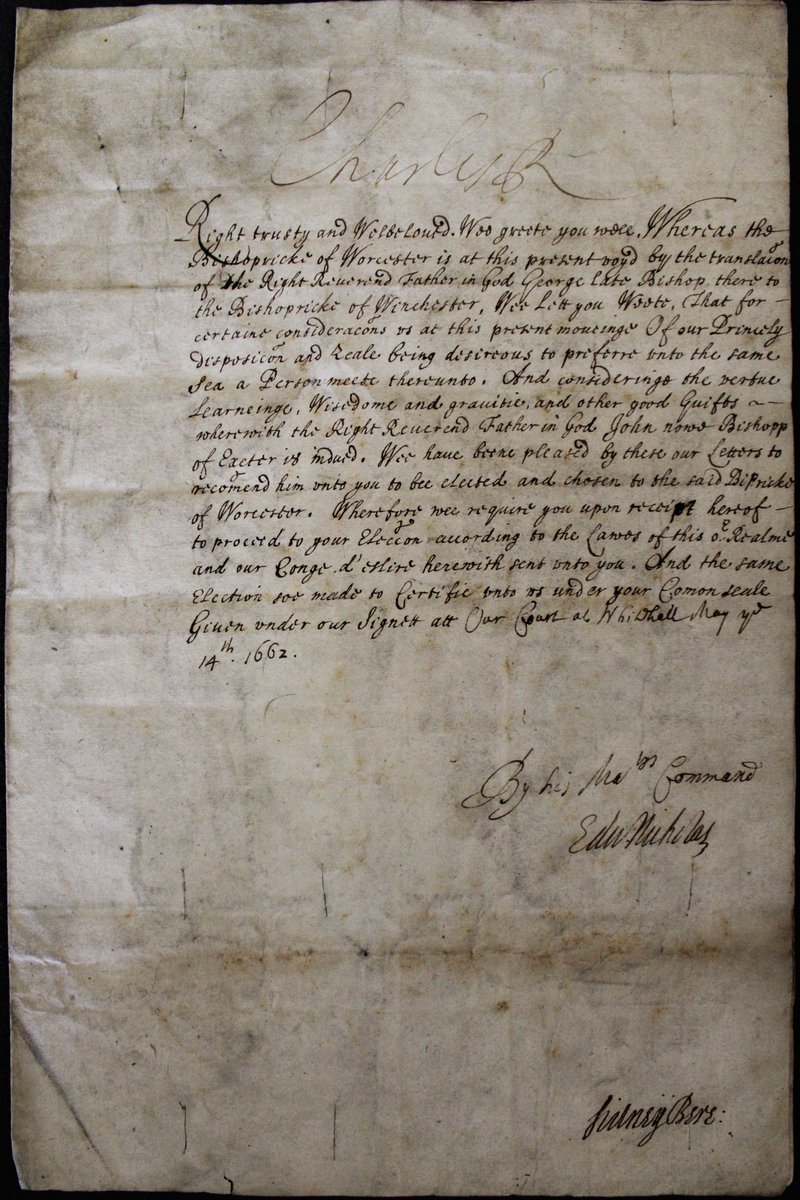 Charles R
Right trusty and Welbeloved. Wee greete you well. Whereas the
Bishopricke of Worcester is at this present voyd by the translacon
of the Right Reverend Father in God George late Bishop there to
the Bishopricke of Winchester, Wee Lett you Weete, That for –
certaine consideracons us at this present moveinge Of our Princely
disposicon and Zeale being desireous to preferre unto the same
Sea a Person meete thereunto. And consideringe the vertue
Learneinge, Wisedome and gravitie, and other good Guifts ~—
wherewith the Right Reverend Father in God John nowe Bishopp
of Exeter is indued. Wee have beene pleased by these our Letters to
recomend him unto you to bee elected and chosen to the said Bispricke
of Worcester. Wherefore wee require you upon receipt hereof –
to proceed to your Eleccon according to the Lawes of this or Realme
and our Conge d'eslire herewith sent unto you. And the same
Election soe made to Certifie unto us under your Comon seale
Given under our Signett att Our Court at Whithall May ye
14th. 1662.
By his Maties Command
Edw Nicholas
Sidney Bere: